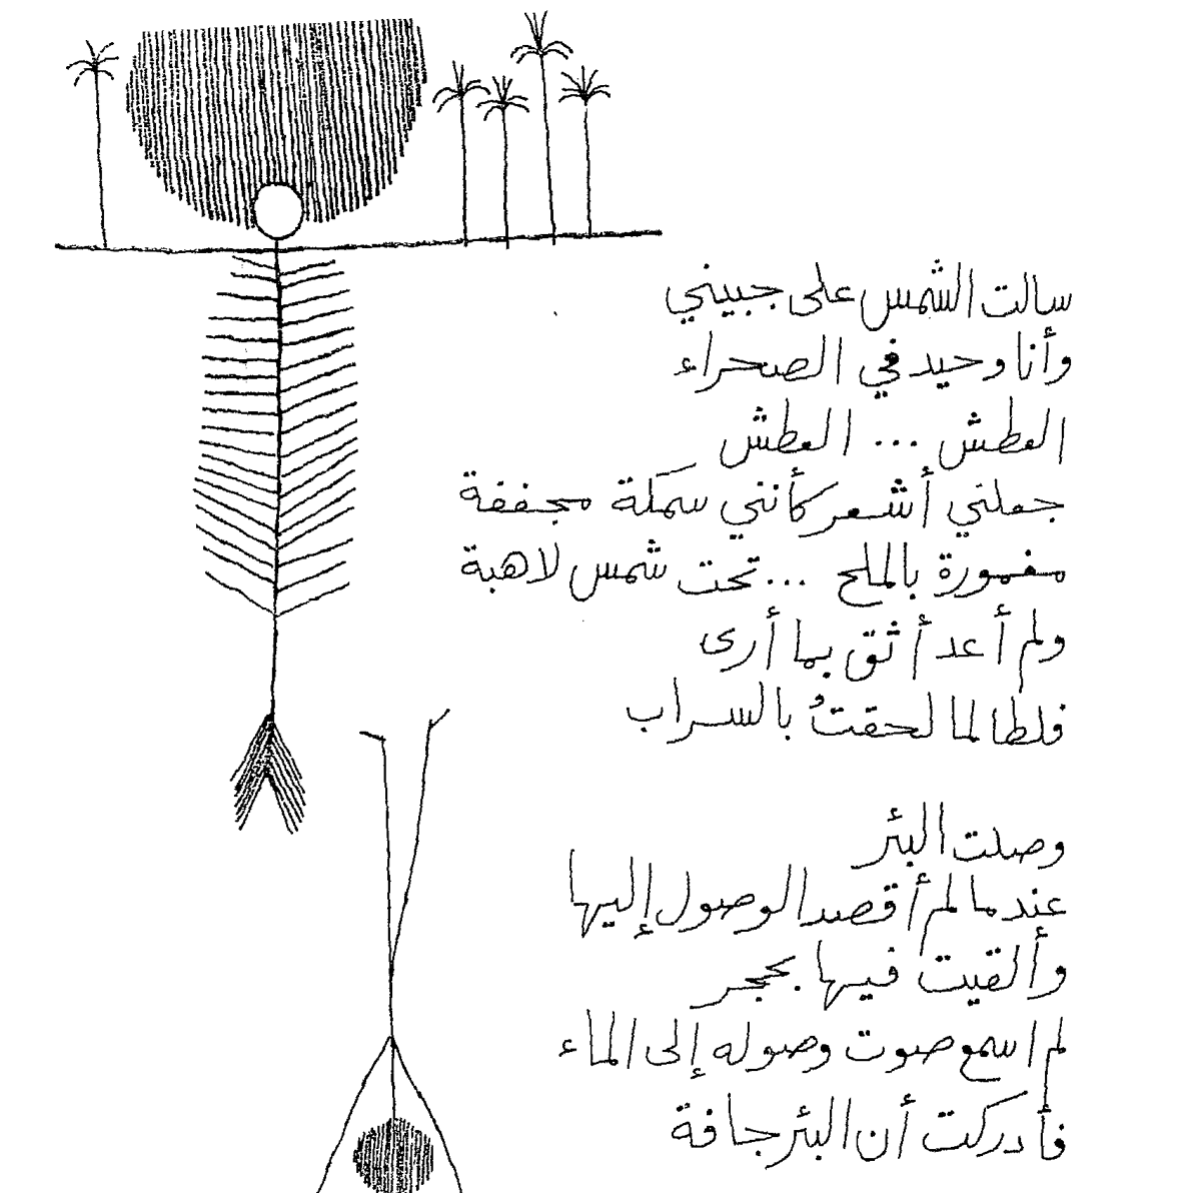 سالت الشمس على جبيني
وأنا وحيد في الصحراء
العطش ... العطش
جعلني أشعر كأنني سمكة مجففة
مغمورة بالملح ... تحت شمس لاهبة
ولم أعد أثق بما أرى
فلطالما لحقتُ بالسراب
وصلت البئر
عندما لم أقصد الوصول إليها
وألقيت فيها بحجر
لم اسمع صوت وصوله إلى الماء
فأدركت أن البئر جافة